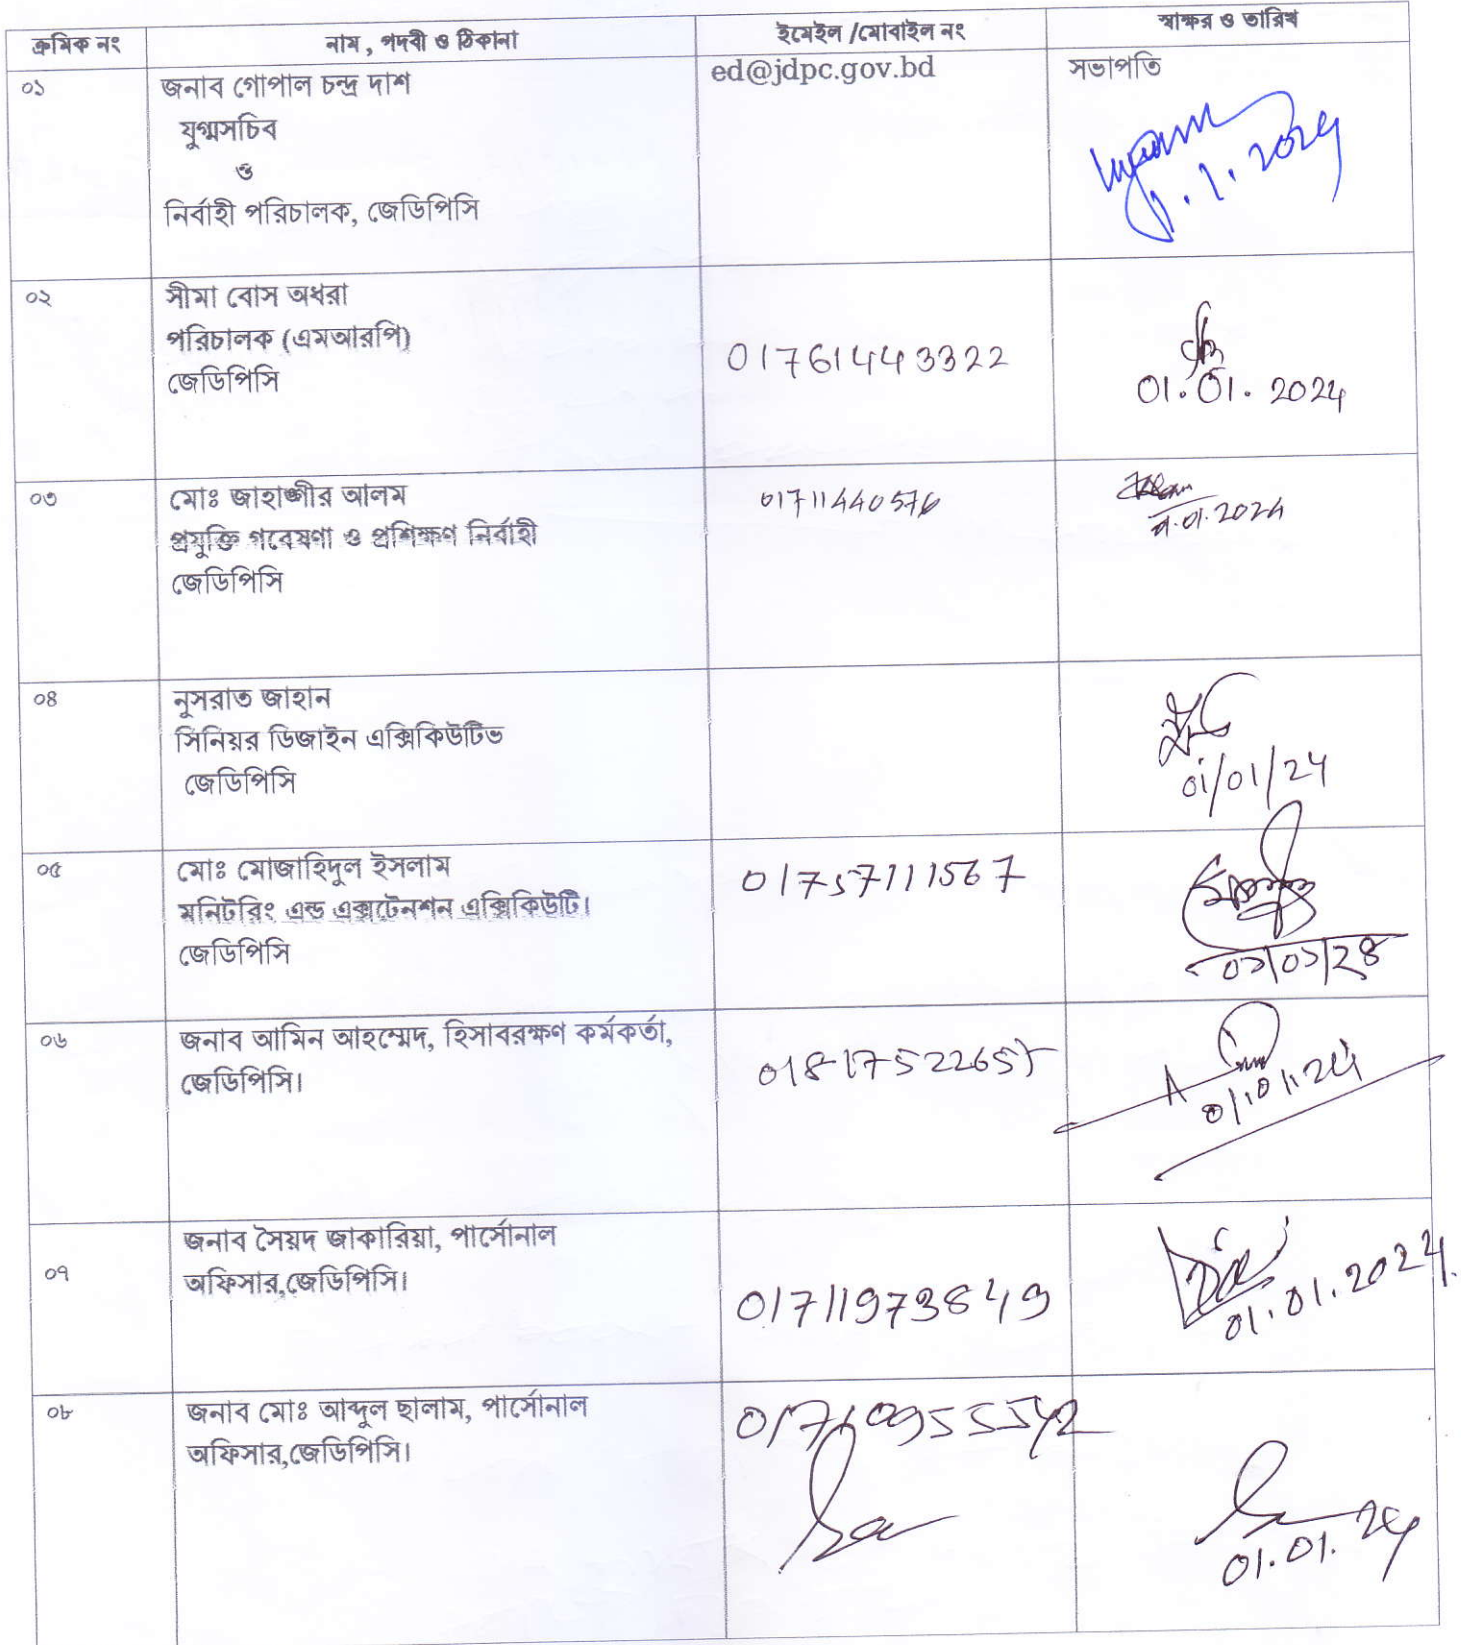 ক্রমিক নং নাম , পদবী ও ঠিকানা ইমেইল /মোবাইল নং স্বাক্ষর ও তারিখ
০১ জনাব গোপাল চন্দ্র দাশ ed@jdpc.gov.bd সভাপতি
যুগ্মসচিব
ও
নির্বাহী পরিচালক, জেডিপিসি
1.1.2024
০২ সীমা বোস অধরা
পরিচালক (এমআরপি)
জেডিপিসি
01761443322
01.01.2024
০৩ মোঃ জাহাঙ্গীর আলম
প্রযুক্তি গবেষণা ও প্রশিক্ষণ নির্বাহী
জেডিপিসি
01711440576
01.2024
০৪ নুসরাত জাহান
সিনিয়র ডিজাইন এক্সিকিউটিভ
জেডিপিসি
01/01/24
০৫ মোঃ মোজাহিদুল ইসলাম
মনিটরিং এন্ড এক্সটেনশন এক্সিকিউটি।
জেডিপিসি
01757111567
০১/০১/২৪
০৬ জনাব আমিন আহম্মেদ, হিসাবরক্ষণ কর্মকর্তা,
জেডিপিসি।
01.01.24
০৭ জনাব সৈয়দ জাকারিয়া, পার্সোনাল
অফিসার,জেডিপিসি।
01711973849
01.01.2024.
০৮ জনাব মোঃ আব্দুল ছালাম, পার্সোনাল
অফিসার,জেডিপিসি।
01.01.24